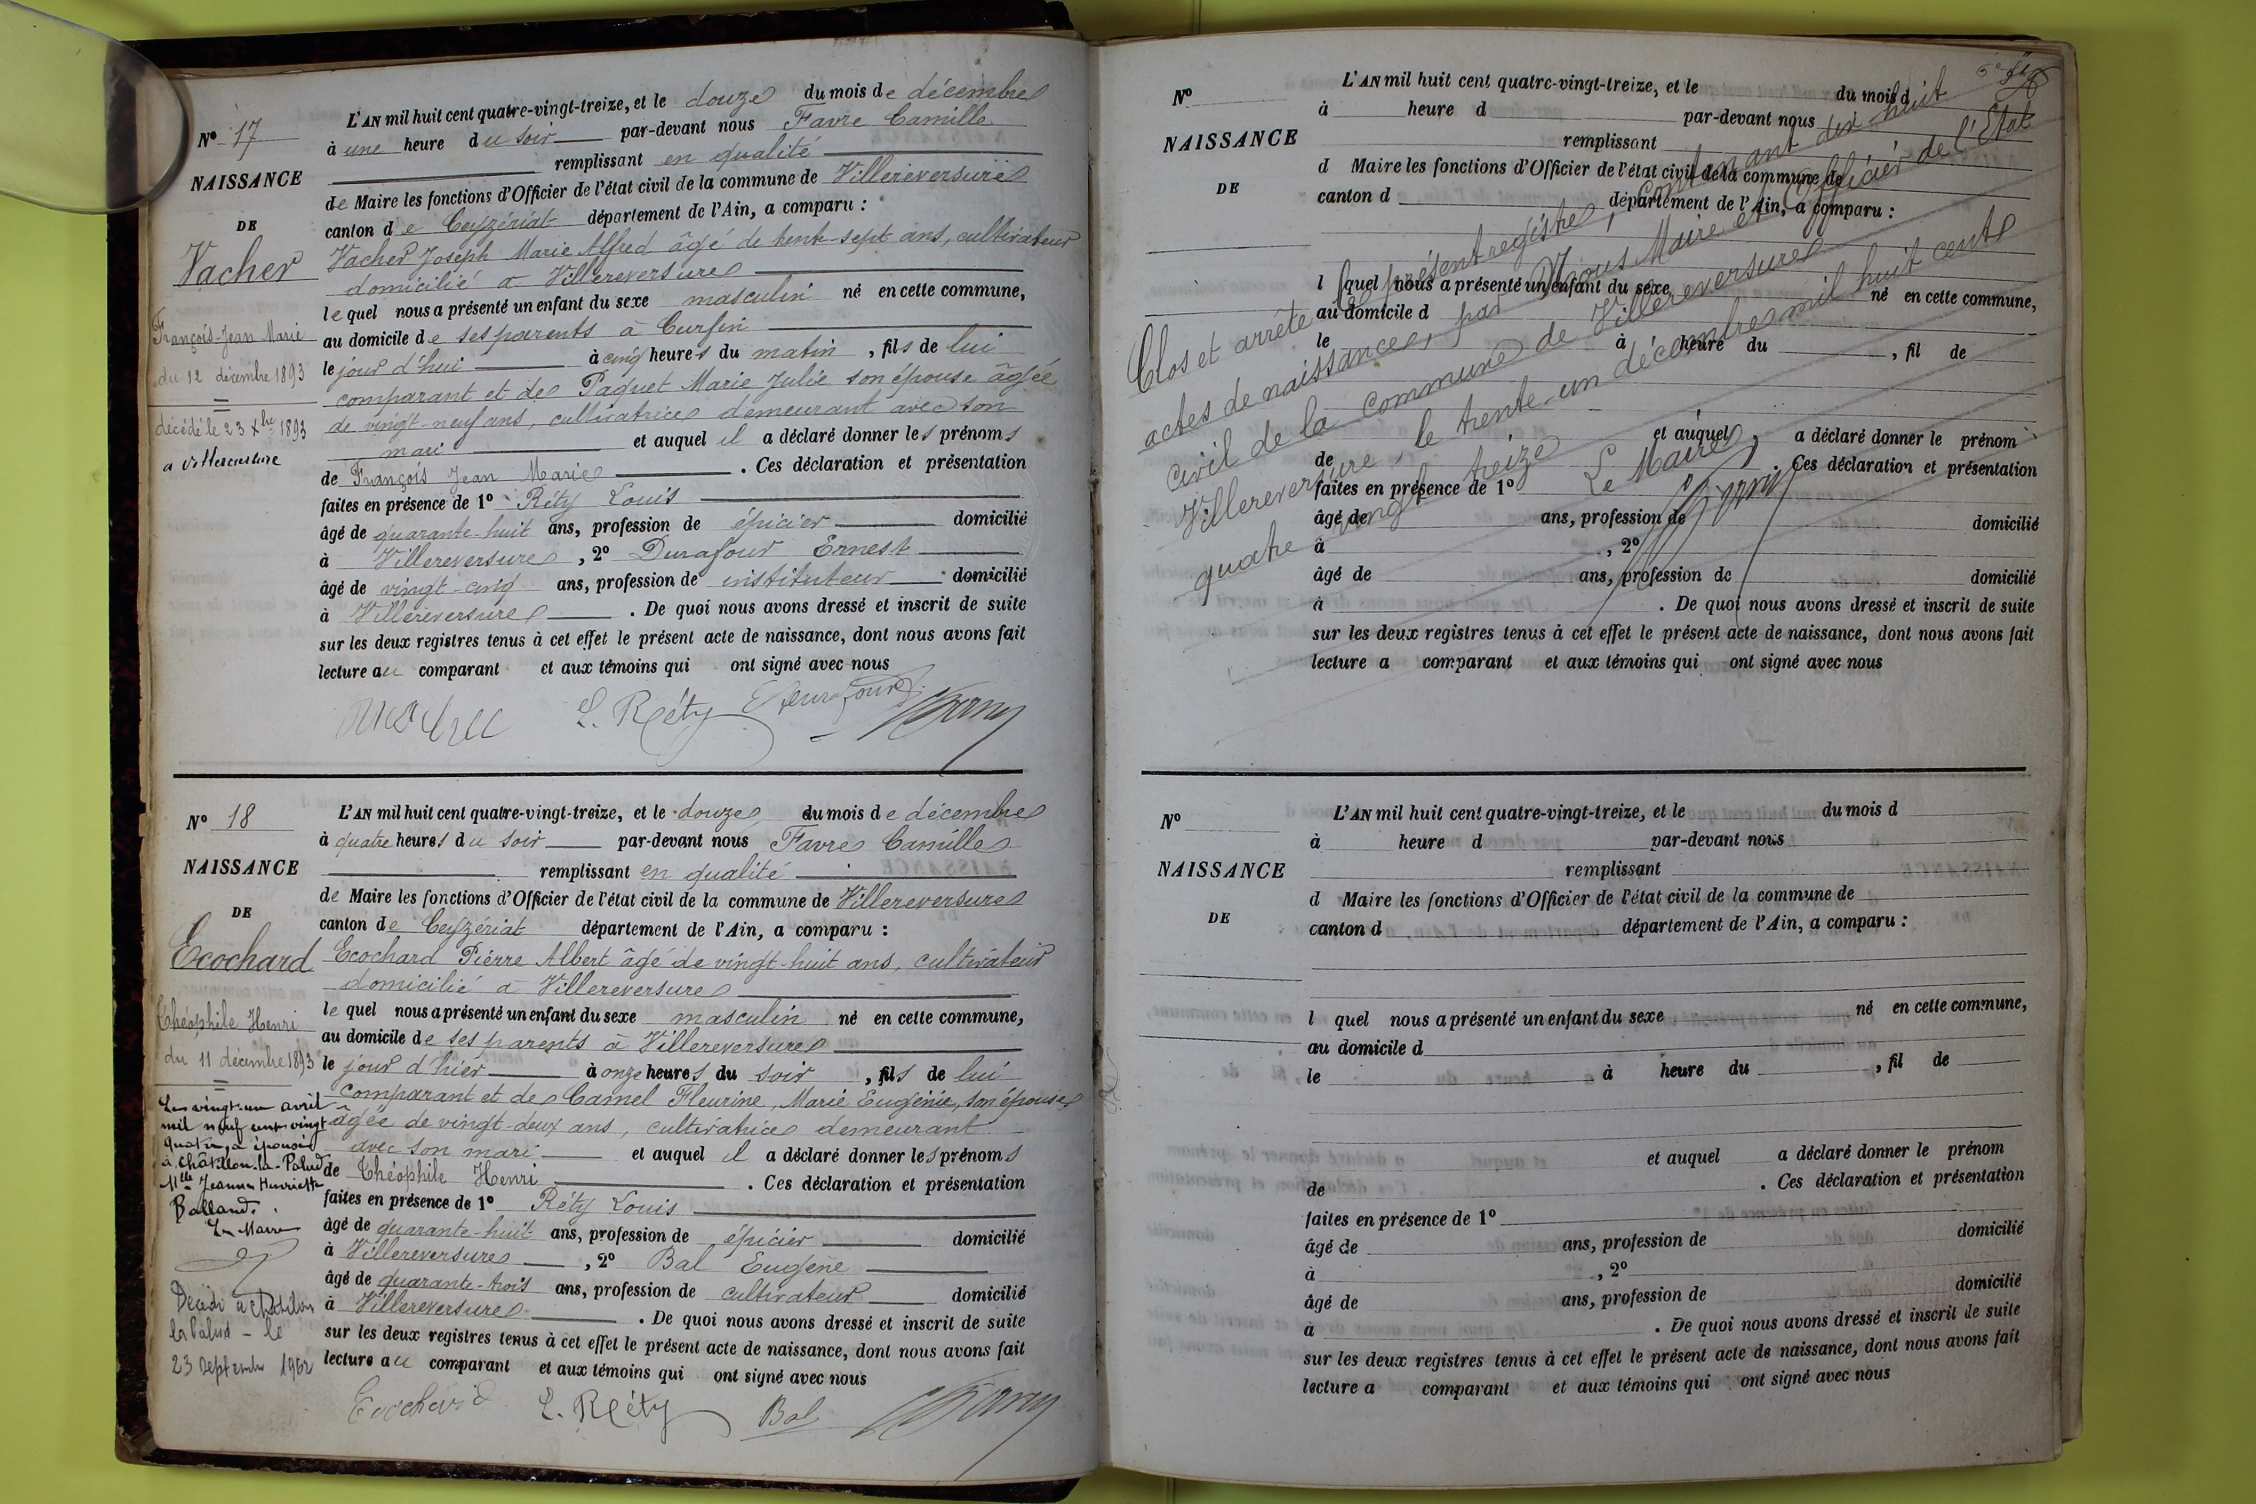 N° 17
NAISSANCE
DE
Vacher
François-Jean Marie
du 12 décembre 1893
décédé le 23 Xbre 1893
a Villereversure
L'AN mil huit cent quatre-vingt-treize, et le douze du mois de décembre
à une heure du soir par-devant nous Favre Camille
remplissant en qualité
de Maire les fonctions d'Officier de l'état civil de la commune de Villereversure
canton de Ceyzériat département de l'Ain, a comparu :
Vacher Joseph Marie Alfred âgé de trente-sept ans, cultivateur
domicilié à Villereversure
lequel nous a présenté un enfant du sexe masculin né en cette commune,
au domicile de ses parents à Curfin
le jour d'hui à cinq heures du matin, fils de lui
comparant et de Paquet Marie Julie son épouse âgée
de vingt-neuf ans, cultivatrice demeurant avec son
mari et auquel il a déclaré donner les prénoms
de François Jean Marie. Ces déclaration et présentation
faites en présence de 1° Réty Louis
âgé de quarante-huit ans, profession de épicier domicilié
à Villereversure, 2° Durafour Ernest
âgé de vingt-cinq ans, profession de instituteur domicilié
à Villereversure. De quoi nous avons dressé et inscrit de suite
sur les deux registres tenus à cet effet le présent acte de naissance, dont nous avons fait
lecture au comparant et aux témoins qui ont signé avec nous
L. Réty E Durafour
N° 18
NAISSANCE
DE
Ecochard
Théophile Henri
du 11 décembre 1893
Le vingt-un avril
mil neuf cent vingt
quatre, a épousé
à Châtillon-la-Palud
Mlle Jeanne Henriette
Balland.
Le Maire
Décédé à Chatillon
la Palud - le
23 septembre 1962
L'AN mil huit cent quatre-vingt-treize, et le douze du mois de décembre
à quatre heures du soir par-devant nous Favre Camille
remplissant en qualité
de Maire les fonctions d'Officier de l'état civil de la commune de Villereversure
canton de Ceyzériat département de l'Ain, a comparu :
Ecochard Pierre Albert âgé de vingt-huit ans, cultivateur
domicilié à Villereversure
lequel nous a présenté un enfant du sexe masculin né en cette commune,
au domicile de ses parents à Villereversure
le jour d'hier à onze heures du soir, fils de lui
comparant et de Camel Fleurine, Marie Eugénie, son épouse
âgée de vingt-deux ans, cultivatrice demeurant
avec son mari et auquel il a déclaré donner les prénoms
de Théophile Henri. Ces déclaration et présentation
faites en présence de 1° Réty Louis
âgé de quarante-huit ans, profession de épicier domicilié
à Villereversure, 2° Bal Eugène
âgé de quarante-trois ans, profession de cultivateur domicilié
à Villereversure. De quoi nous avons dressé et inscrit de suite
sur les deux registres tenus à cet effet le présent acte de naissance, dont nous avons fait
lecture au comparant et aux témoins qui ont signé avec nous
Ecochard L. Réty Bal
N°
NAISSANCE
DE
L'AN mil huit cent quatre-vingt-treize, et le du mois d
à heure d par-devant nous
remplissant
d Maire les fonctions d'Officier de l'état civil de la commune de
canton d département de l'Ain, a comparu :
l quel nous a présenté un enfant du sexe né en cette commune,
au domicile d
le à heure du , fil de
et auquel a déclaré donner le prénom
de . Ces déclaration et présentation
faites en présence de 1°
âgé de ans, profession de domicilié
à , 2°
âgé de ans, profession de domicilié
à . De quoi nous avons dressé et inscrit de suite
sur les deux registres tenus à cet effet le présent acte de naissance, dont nous avons fait
lecture a comparant et aux témoins qui ont signé avec nous
Clos et arrêté le présent registre, contenant dix huit
actes de naissance, par Nous Maire et Officier de l'Etat
civil de la commune de Villereversure
Villereversure, le trente-un décembre mil huit cent
quatre vingt treize
Le Maire
N°
NAISSANCE
DE
L'AN mil huit cent quatre-vingt-treize, et le du mois d
à heure d par-devant nous
remplissant
d Maire les fonctions d'Officier de l'état civil de la commune de
canton d département de l'Ain, a comparu :
l quel nous a présenté un enfant du sexe né en cette commune,
au domicile d
le à heure du , fil de
et auquel a déclaré donner le prénom
de . Ces déclaration et présentation
faites en présence de 1°
âgé de ans, profession de domicilié
à , 2°
âgé de ans, profession de domicilié
à . De quoi nous avons dressé et inscrit de suite
sur les deux registres tenus à cet effet le présent acte de naissance, dont nous avons fait
lecture a comparant et aux témoins qui ont signé avec nous